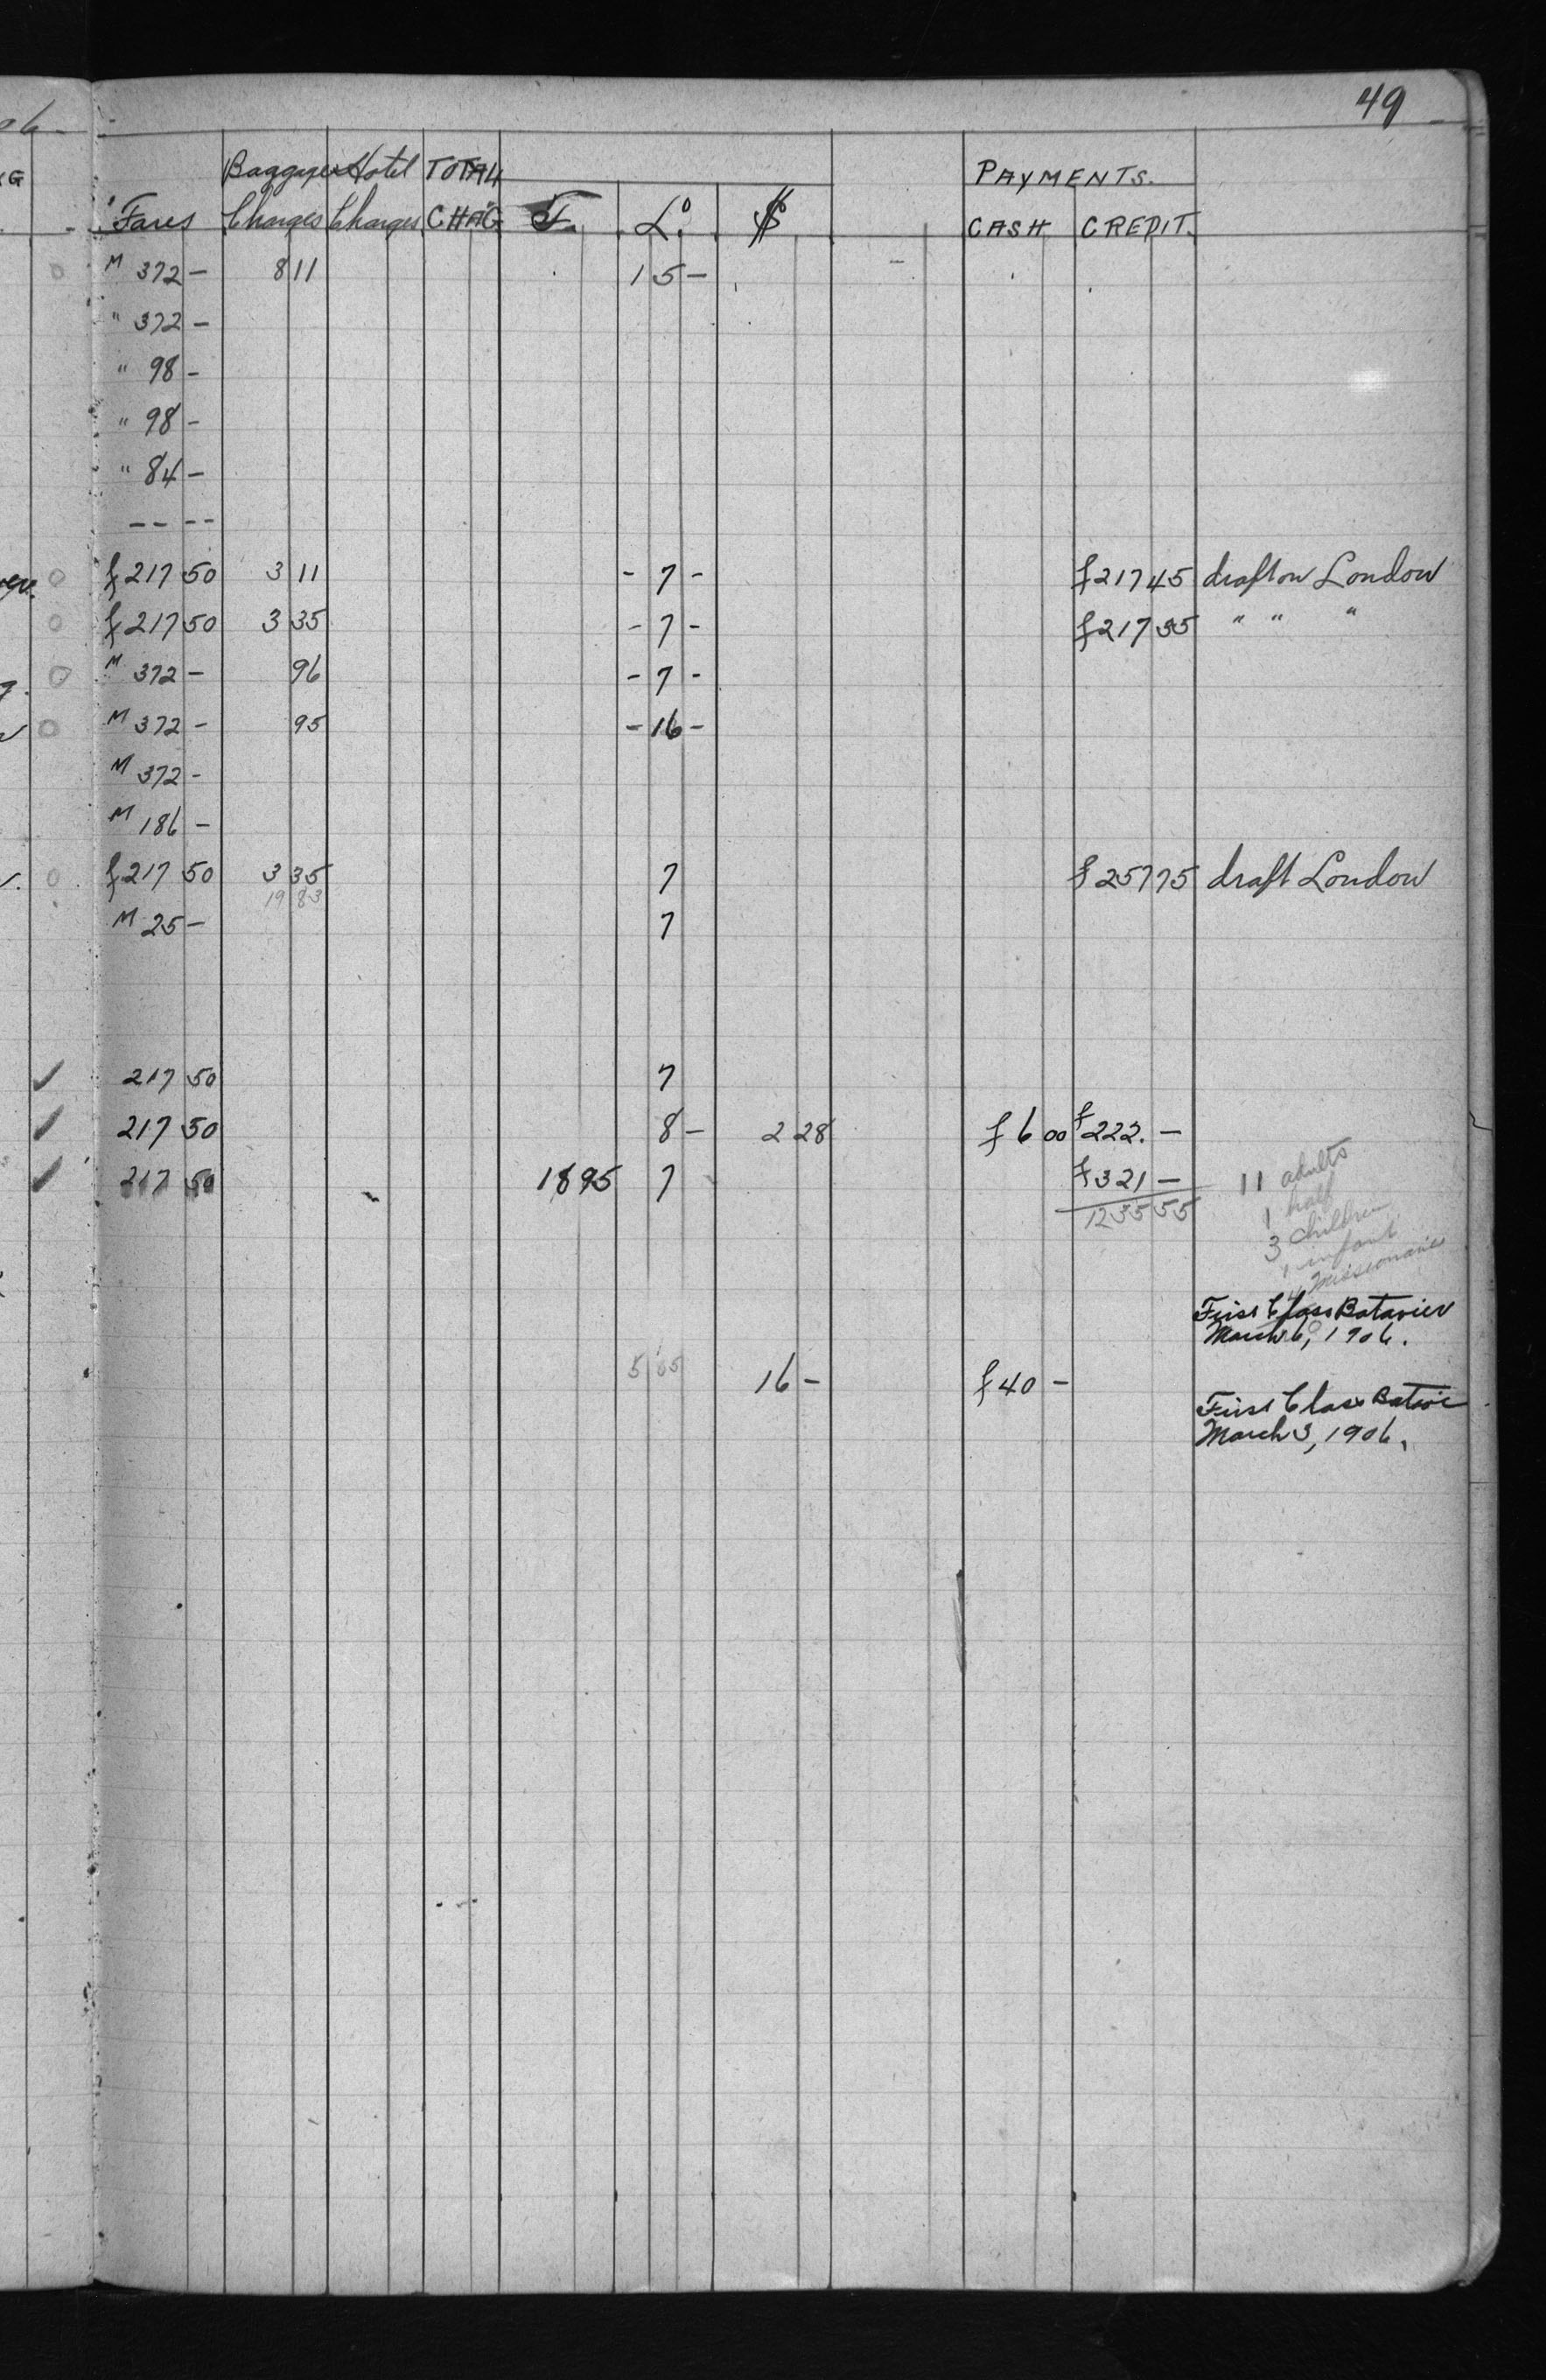 49
Baggage Hotel TOTAL PAYMENTS.
Fares Charges Charges CHAG F. £. $ CASH CREDIT.
M 372 - 8 11 1 5 -
" 372 -
" 98 -
" 98 -
" 84 -
-- --
f 217 50 3 11 - 7 - f 217 45 draft on London
f 217 50 3 35 - 7 - f 217 35 " " "
M 372 - 96 - 7 -
M 372 - 95 - 16 -
M 372 -
M 186 -
f 217 50 3 35 7 f 257 75 draft London
19 83
M 25 - 7
217 50 7
217 50 8 - 2 28 f 6 00 f 222. -
217 50 18 95 7 f 321 -
1235 55
11 adults
1 half
3 children
1 infant
4 missionaries
First Class Batavier
March 6, 1906.
5 65 16 - f 40 -
First Class
March 3, 1906.